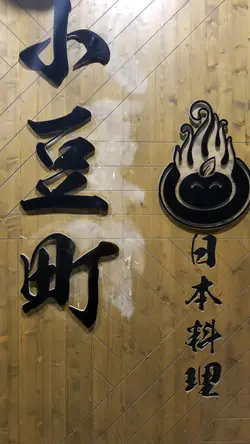 小豆町
日本料理